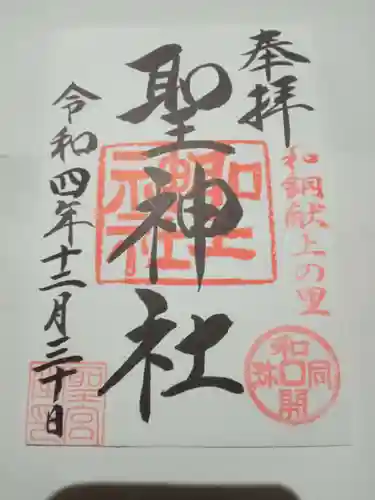 奉拝
和銅献上の里
聖神社
令和四年十二月三十日
和同開珎